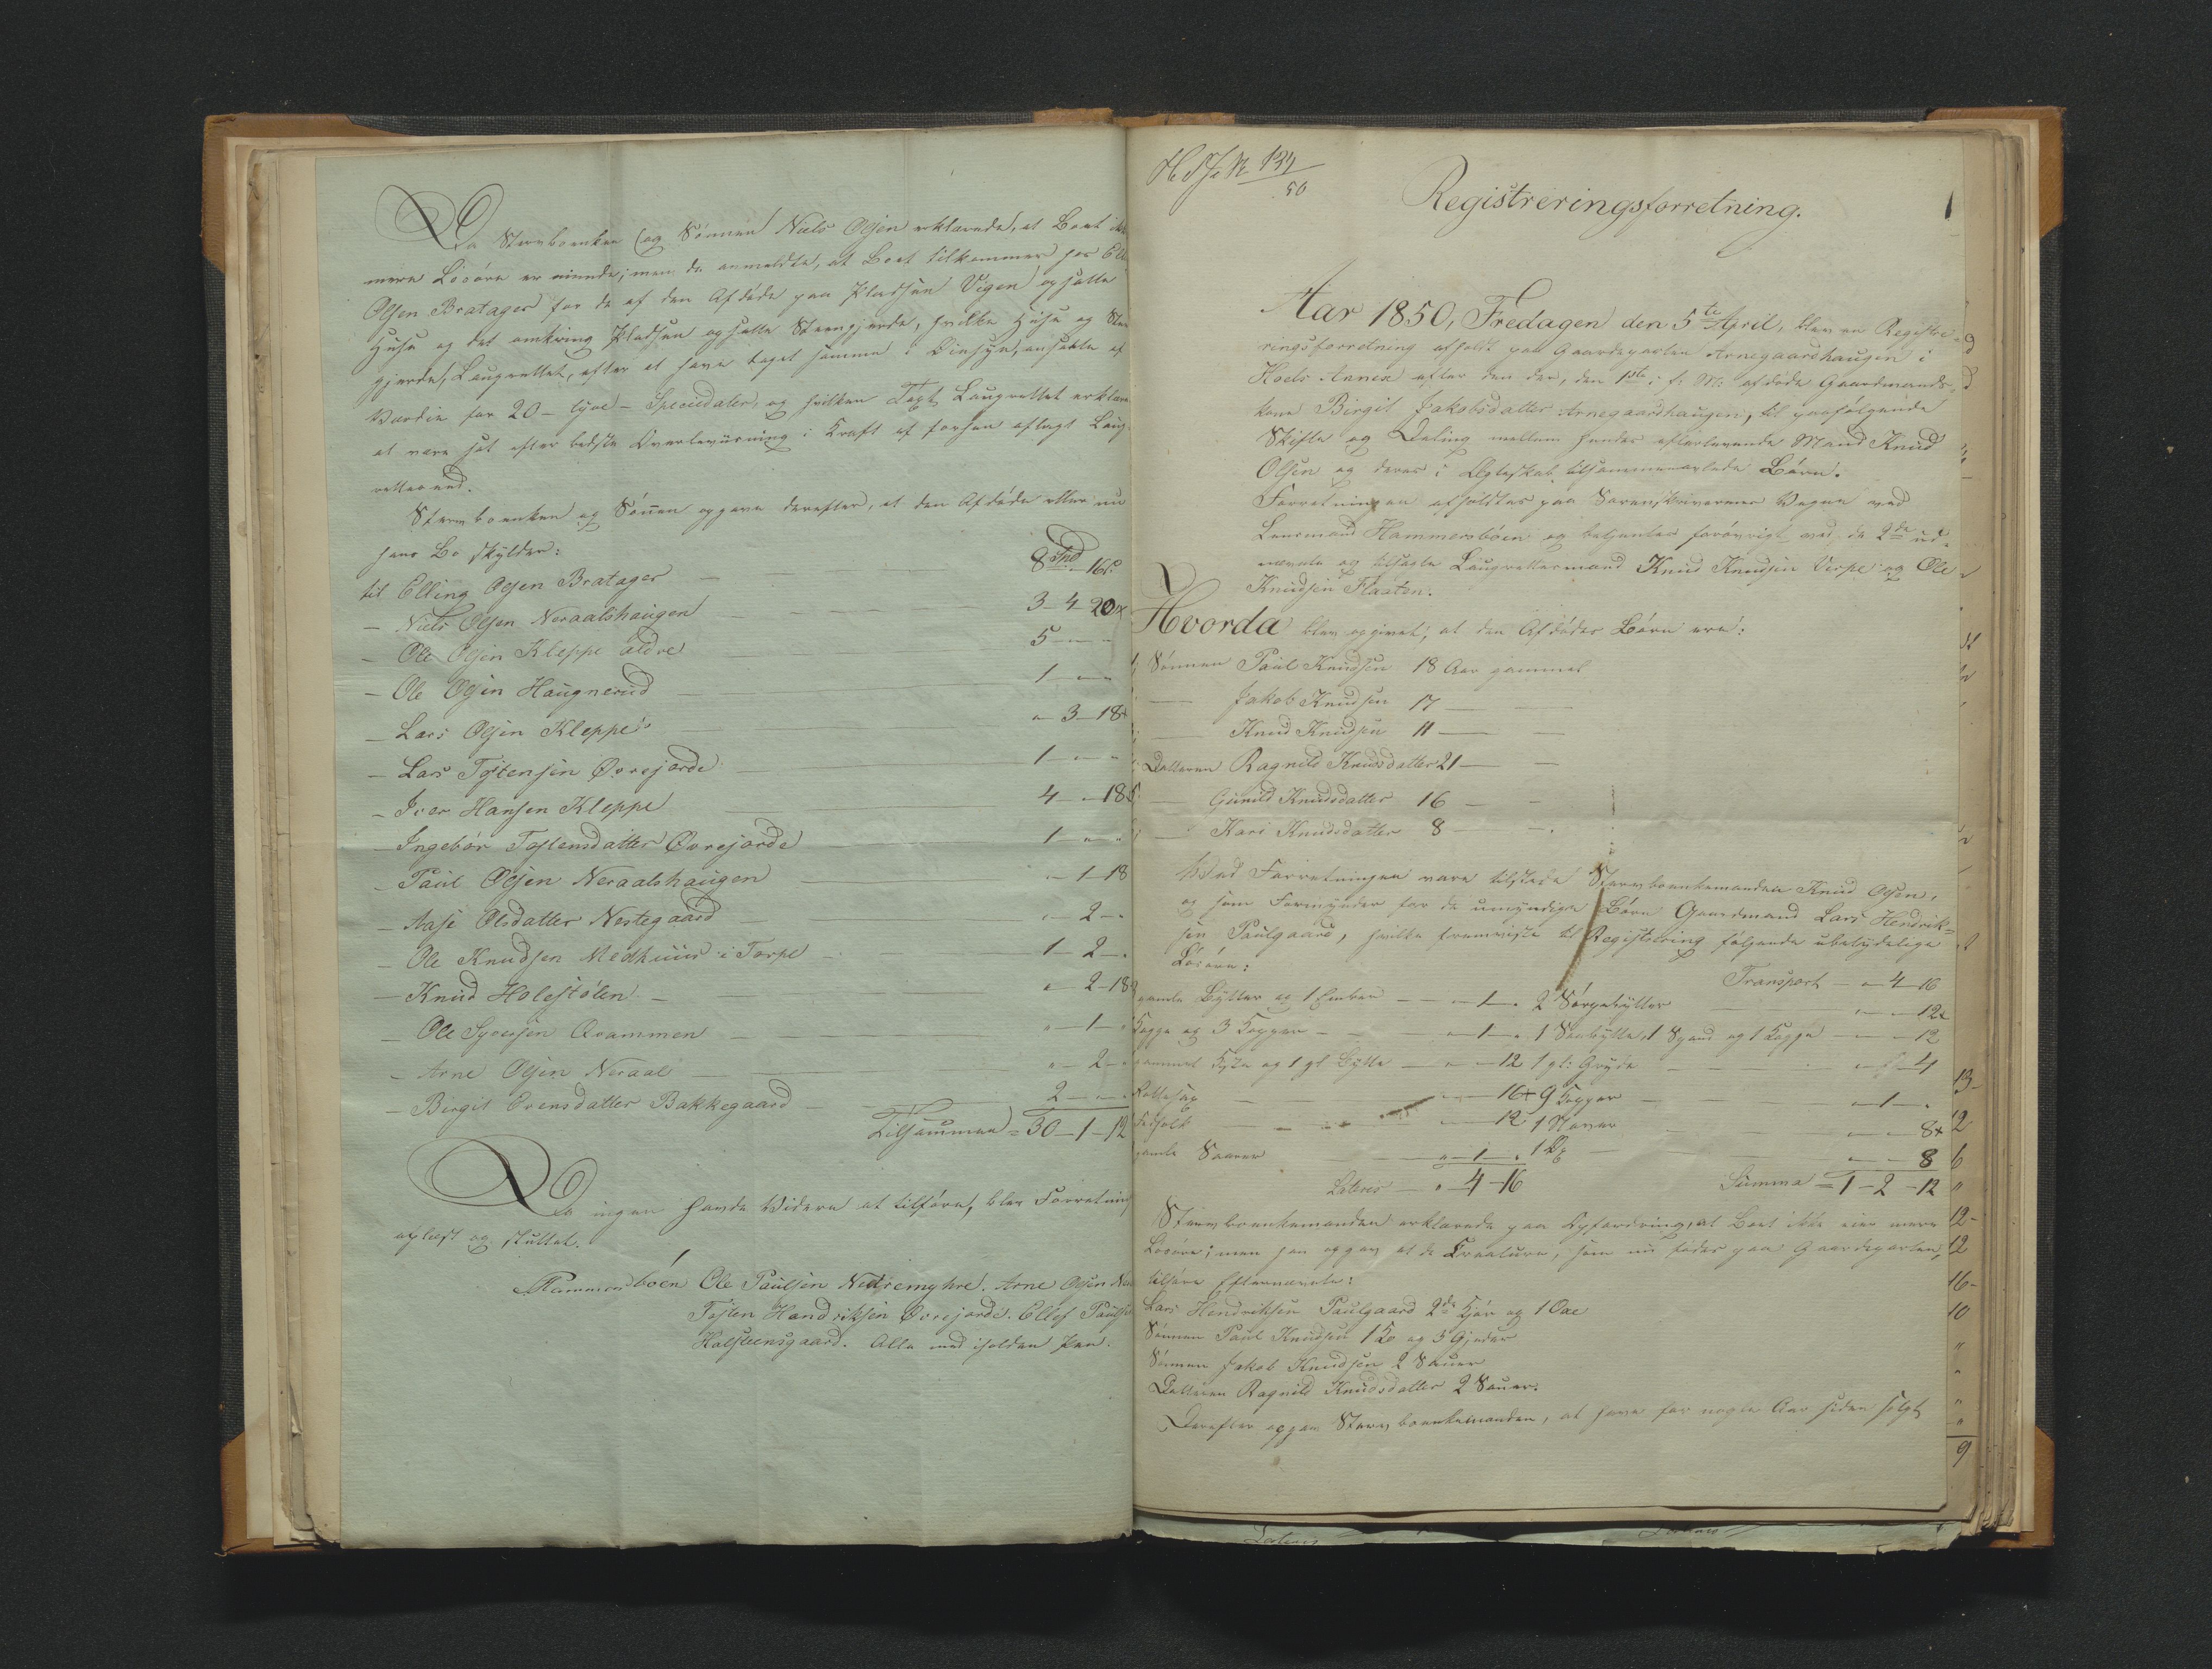 Da Stervboenken (og Sønnen) Niels Olsen erklærede, at Boet ikke
mere Løsøre er eiende; men de anmeldte, at Boet tilkommer hos Elling
Olsen Bratager for de af den Afdøde paa Pladsen Vigen opsatte
Huse og det omkring Pladsen opsatte Steengjerde, hvilke Huse og Steen
gjerde, Laugrettet, efter at have taget samme i Øiesyn, ansatte af
Værdie for 20 - tyve - Speciedaler, og hvilken Taxt Laugrettet erklære
at være sat efter bedste Overbeviisning i Kraft af forhen aflagt Laug
rettes eed.
Stervboenken og Sønnen opgave derefter, at den Afdøde eller nu
hans Bo skylder:
til Elling Olsen Bratager — 8 Spd - 16 s
— Niels Olsen Neraalshaugen — 3 - 4 - 20
— Ole Olsen Kleppe ældre — 5 - " - "
— Ole Olsen Haugnerud — 1 - " - "
— Lars Olsen Kleppe — " - 3 - 18
— Lars Tostensen Øvrejorde — 1 - " - "
— Iver Hansen Kleppe — 4 - " - 18
— Ingebør Tostensdatter Øvrejorde — 1 - " - "
— Paul Olsen Neraalshaugen — " - 1 - 18
— Aase Olsdatter Nestegaard — " - 2 - "
— Ole Knudsen Medhuus i Torpe — 1 - 2 - "
— Knud Holestølen — " - 2 - 18
— Ole Syversen Qvammen — " - 1 - "
— Arne Olsen Neraal — " - 2 - "
— Birgit Ørensdatter Bakkegaard — 2 - " - "
Tilsammen = 30 - 1 - 12
Da ingen havde Videre at tilføre, blev Forretning
oplæst og sluttet.
Hammersbøen Ole Paulsen Nedremyhre. Arne Olsen
Tosten Handriksen Øvrejorde. Ellef Pauls
Halsteensgaard. Alle med iholden Pen.
137/50
Registreringsforretning.
1
Aar 1850, Fredagen den 5te April, blev en Registre-
ringsforretning afholdt paa Gaardeparten Arnegaardhaugen i
Hoels Annex efter den der, den 1ste i f: M: afdøde Gaardmands-
kone Birgit Jakobsdatter Arnegaardhaugen, til paafølgende
Skifte og Deling mellem hendes efterlevende Mand Knud
Olsen og deres i Ægteskab tilsammenavlede Børn.
Forretningen afholdtes paa Sorenskriverens Vegne ved
Lensmand Hammersbøen og betjentes forøvrigt ved de 2de ud-
nævnte og tilsagte Laugrettesmænd Knud Knudsen Verpe og Ole
Knudsen Flaaten.
Hvorda blev opgivet, at den Afdødes Børn ere:
Sønnen Paul Knudsen 18 Aar gammel
— Jakob Knudsen 17 — —
— Knud Knudsen 11 — —
Datteren Ragnild Knudsdatter 21 — —
— Gunild Knudsdatter 16 — —
— Kari Knudsdatter 8 — —.
Ved Forretningen vare tilstede Stervboenkemanden Knud Olsen,
og som Formynder for de umyndige Børn Gaardmand Lars Hendrik-
sen Paulgaard, hvilke fremviste til Registrering følgende ubetydelige
Løsøre:
Transport — " - 4 - 16
gamle Bytter og 1 Ember — " - 1 - " 2 Sørpebytter — " - " - 12
Kagge og 3 Kopper — " - 1 - " 1 Vanbytte, 1 Spand og 1 Kagge — " - " - 12
gammel Kiste og 1 gl Bytte — " - " - 12 1 gl: Gryde — " - " - 4
— " - " - 16 9 Kopper — " - 1 - "
— " - " - 12 1 Naver — " - " - 8
gamle Saaver — " - 1 - " 1 — " - " - 8
Lateris — " - 4 - 16 Summa = 1 - 2 - 12
Stervboenkemanden erklærede paa Opfordring, at Boet ikke eier mere
Løsøre; men han opgav at de Creature, som nu fødes paa Gaardeparten,
tilhøre Efternævnte:
Lars Hendriksen Paulgaard 2de Kjør og 1 Oxe
Sønnen Paul Knudsen 1 Ko og 3 Gjeder
Sønnen Jakob Knudsen 2 Sauer
Datteren Ragnild Knudsdatter 2 Sauer.
Derefter opgav Stervboenkemanden, at have for nogle Aar siden solgt